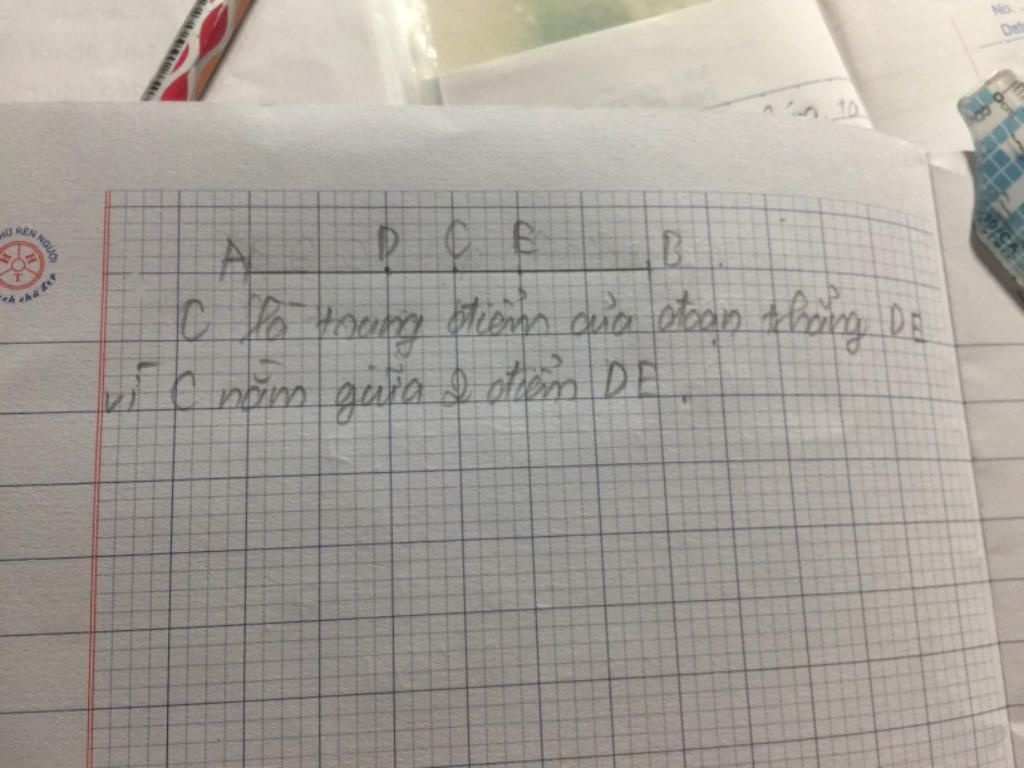 No.
Date
A D C E B
C là trung điểm của đoạn thẳng DE
vì C nằm giữa 2 điểm DE.